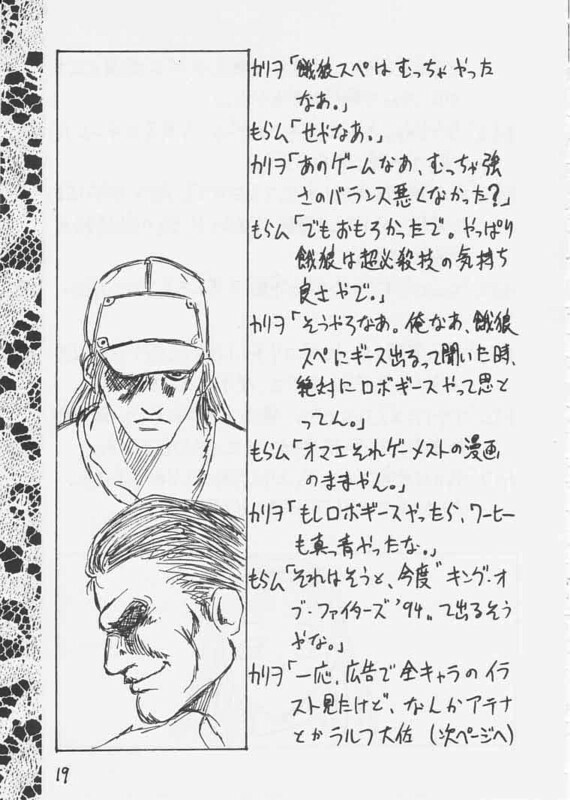 カリヲ「餓狼スペはむっちゃやった
なあ。」
もらム「せやなあ。」
カリヲ「あのゲームなあ、むっちゃ強
さのバランス悪くなかった?」
もらム「でもおもろかったで。やっぱり
餓狼は超必殺技の気持ち
良さやで。」
カリヲ「そうやろなあ。俺なあ、餓狼
スペにギース出るって聞いた時、
絶対にロボギースやって思と
ってん。」
もらム「オマエそれゲーメストの漫画
のままやん。」
カリヲ「もしロボギースやったら、ワーヒー
も真っ青やったな。」
もらム「それはそうと、今度〝キング・オ
ブ・ファイターズ'94〟て出るそう
やな。」
カリヲ「一応、広告で全キャラのイラ
スト見たけど、なんかアテナ
とかラルフ大佐 (次ページへ)
19